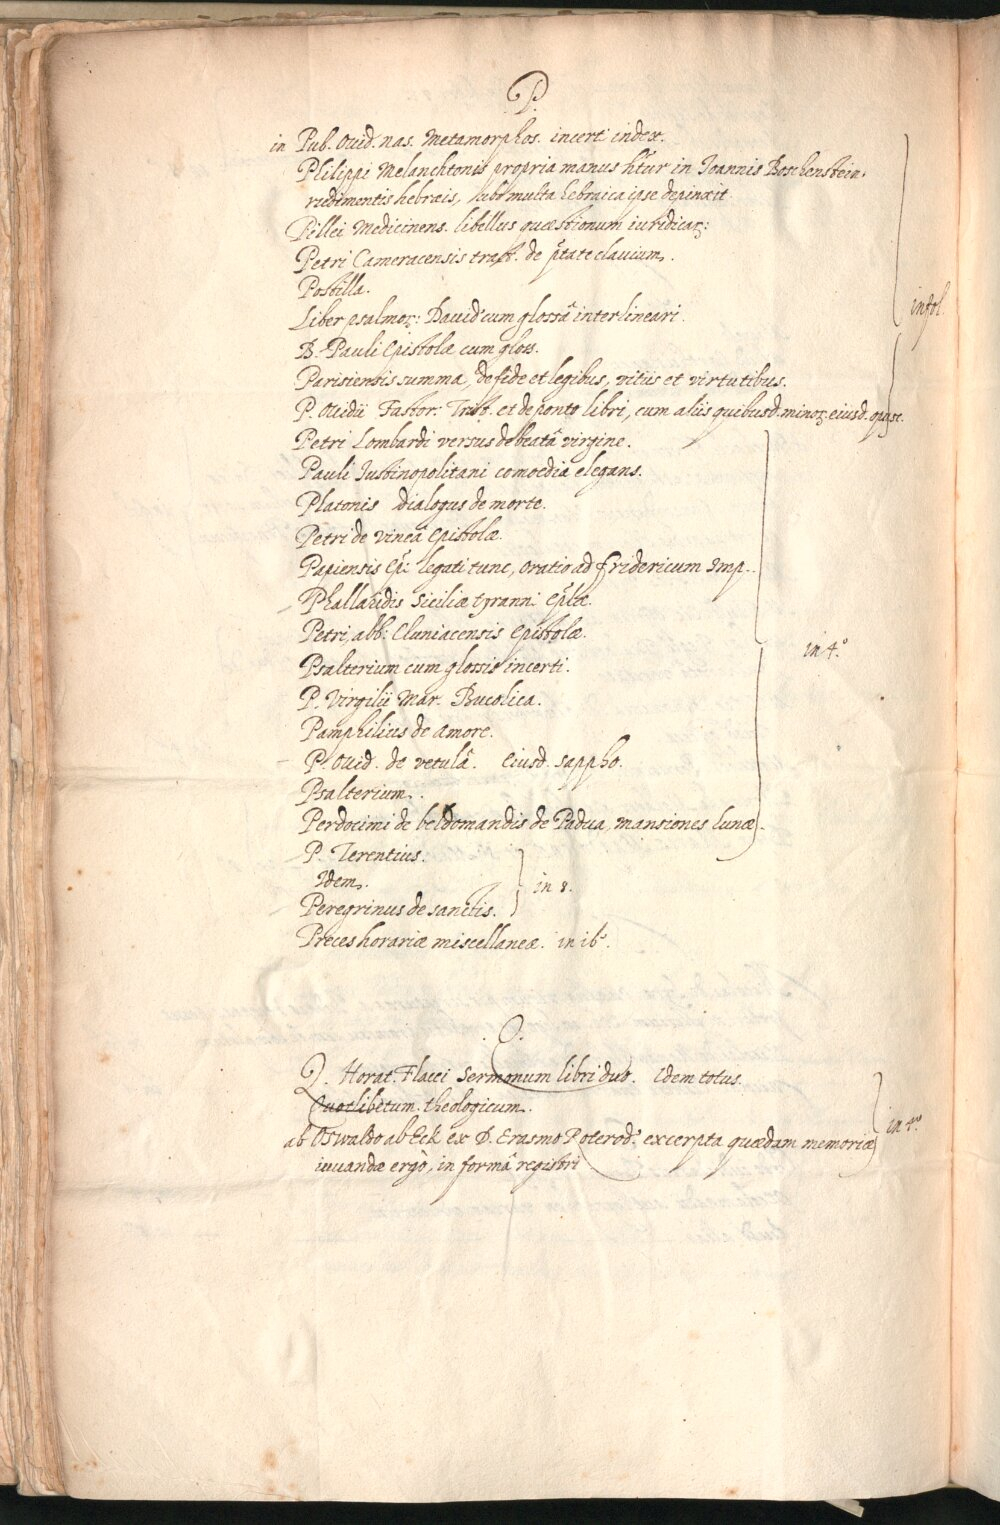 P.
in Pub. Ouid. nas. Metamorphos. incerti index.
Philippi Melanchtonis propria manus htur in Joannis Boschenstein.
rudimentis hebrais, ubi multa hebraica ipse depinxit.
Pillei Medicinens. libellus quæstionum iuridicaꝝ:
Petri Cameracensis tract. de ptate clauium.
Postilla.
Liber psalmoꝝ: Dauid cum glossâ interlineari.
B. Pauli Epistolæ cum gloss.
Parisiensis summa, de fide et legibus, vitiis et virtutibus.
infol.
P. Ouidii Fastor: Trist. et de ponto libri, cum aliis quibusd. minoꝝ eiusd. opusc.
Petri Lombardi versus de beatâ virgine.
Pauli Justinopolitani comoedia elegans.
Platonis dialogus de morte.
Petri de vineâ Epistolæ.
Papiensis Ep: legati tunc, oratio ad Fridericum Imp.
Phallaridis Siciliæ tyranni Eplæ.
Petri, abb: Cluniacensis Epistolæ.
in 4.º
Psalterium cum glossis incerti.
P. Virgilii Mar. Bucolica.
Pamphilius de Amore.
P. Ouid. de vetulâ. Eiusd. sappho.
Psalterium.
Perdocimi de beldomandis de Padua, mansiones Lunæ.
P. Terentius.
Idem.
in 8.
Peregrinus de sanctis.
Preces horariæ miscellaneæ. in 16º.
Q.
Q. Horat. Flacci Sermonum libri duo. Idem totus.
Quotlibetum theologicum.
in 4to.
ab Oswaldo ab Eck ex D. Erasmo Roterodº. excerpta quædam memoriæ
iuuandæ ergò, in formâ registri